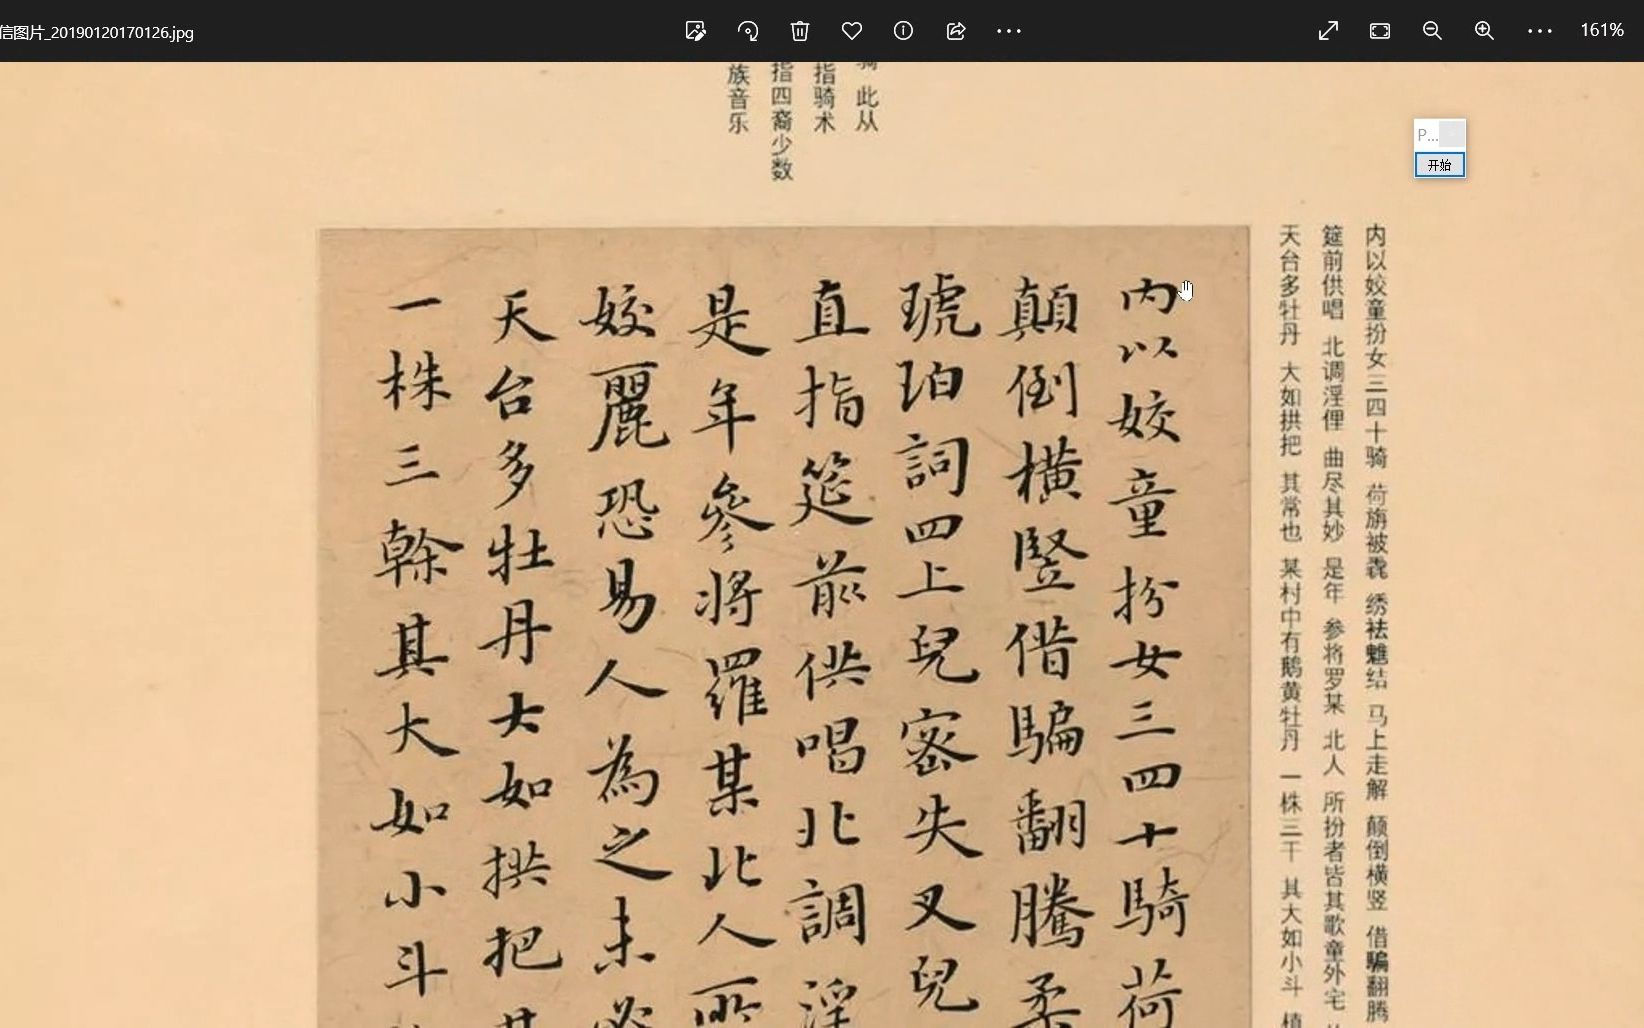 信图片_20190120170126.jpg
161%
P...
开始
此从
指骑术
指四裔少数
族音乐
内以姣童扮女三四十骑 荷旃被毳 绣祛魋结 马上走解 颠倒横竖 借骗翻腾
筵前供唱 北调淫俚 曲尽其妙 是年 参将罗某 北人 所扮者皆其歌童外宅
天台多牡丹 大如拱把 其常也 某村中有鹅黄牡丹 一株三干 其大如小斗 植
内以姣童扮女三四十騎荷
顛倒橫竪借騙翻騰柔
琥珀詞四上兒密失叉兒
直指筵前供唱北調淫
是年參將羅某北人所
姣麗恐易人為之未必
天台多牡丹大如拱把其
一株三榦其大如小斗